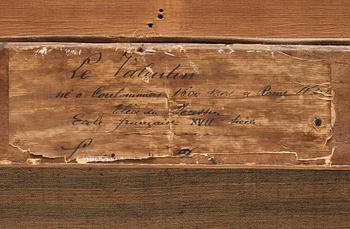 Le Valentin
né à Coulommiers 1600 mort à Rome
Elève du Poussin
Ecole française XVII siècle